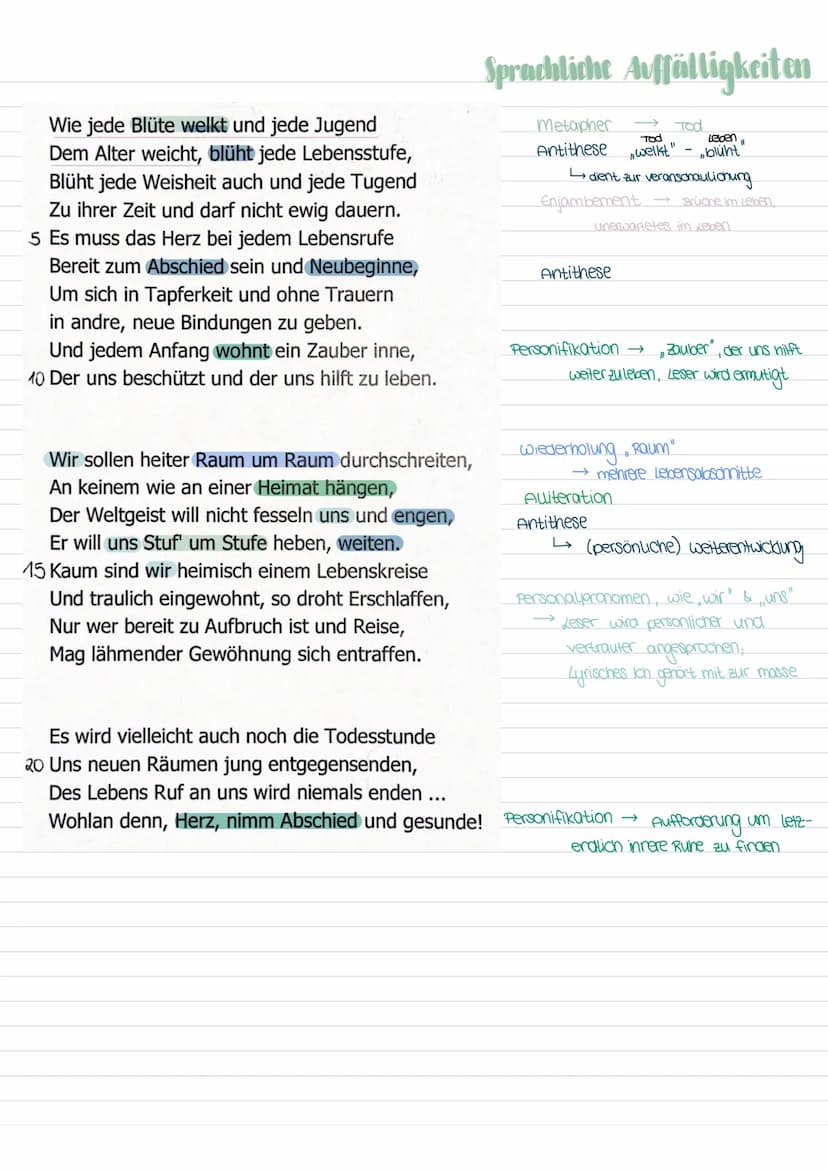 Sprachliche Auffälligkeiten
Wie jede Blüte welkt und jede Jugend
Dem Alter weicht, blüht jede Lebensstufe,
Blüht jede Weisheit auch und jede Tugend
Zu ihrer Zeit und darf nicht ewig dauern.
5 Es muss das Herz bei jedem Lebensrufe
Bereit zum Abschied sein und Neubeginne,
Um sich in Tapferkeit und ohne Trauern
in andre, neue Bindungen zu geben.
Und jedem Anfang wohnt ein Zauber inne,
10 Der uns beschützt und der uns hilft zu leben.
Wir sollen heiter Raum um Raum durchschreiten,
An keinem wie an einer Heimat hängen,
Der Weltgeist will nicht fesseln uns und engen,
Er will uns Stuf' um Stufe heben, weiten.
15 Kaum sind wir heimisch einem Lebenskreise
Und traulich eingewohnt, so droht Erschlaffen,
Nur wer bereit zu Aufbruch ist und Reise,
Mag lähmender Gewöhnung sich entraffen.
Es wird vielleicht auch noch die Todesstunde
20 Uns neuen Räumen jung entgegensenden,
Des Lebens Ruf an uns wird niemals enden ...
Wohlan denn, Herz, nimm Abschied und gesunde!
Metapher → Tod
Tod Leben
Antithese „welkt" - „blüht"
↳ dient zur veranschaulichung
Enjambement → Brüche im Leben,
unerwartetes im Leben
Antithese
Personifikation → „Zauber", der uns hilft
weiter zu leben, Leser wird ermutigt
Wiederholung „Raum"
→ mehrere Lebensabschnitte
Alliteration
Antithese
↳ (persönliche) weiterentwicklung
Personalpronomen, wie „wir" & „uns"
→ Leser wird persönlicher und
vertrauter angesprochen;
Lyrisches Ich gehört mit zur masse
Personifikation → Aufforderung um letz-
endlich innere Ruhe zu finden